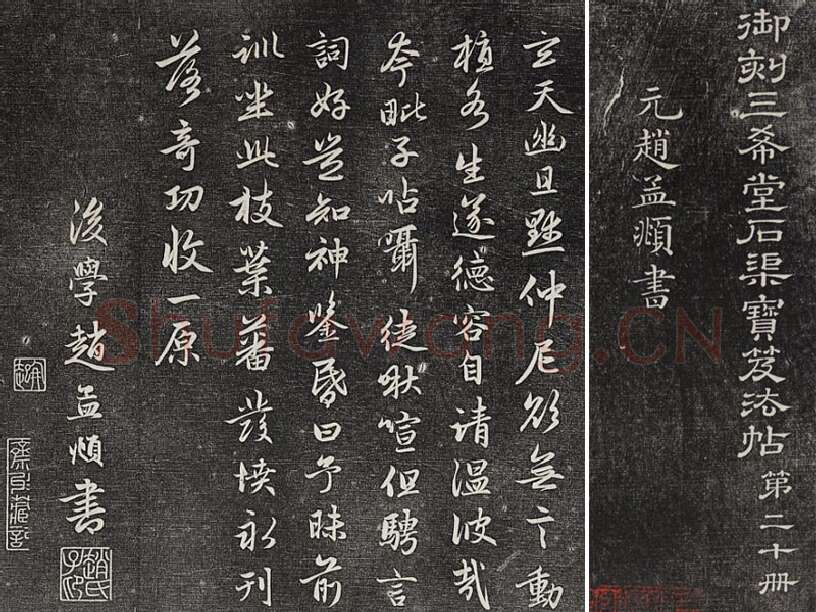 御刻三希堂石渠寶笈法帖第二十冊
元趙孟頫書
玄天幽且默仲尼欲無言動
植各生遂德容自清温彼哉
夸毗子呫囁徒啾喧但騁言
詞好豈知神鑒昏曰予昧前
訓坐此枝葉蕃發憤永刊
落奇功收一原
後學趙孟頫書
趙氏子昂
Shufawang.CN